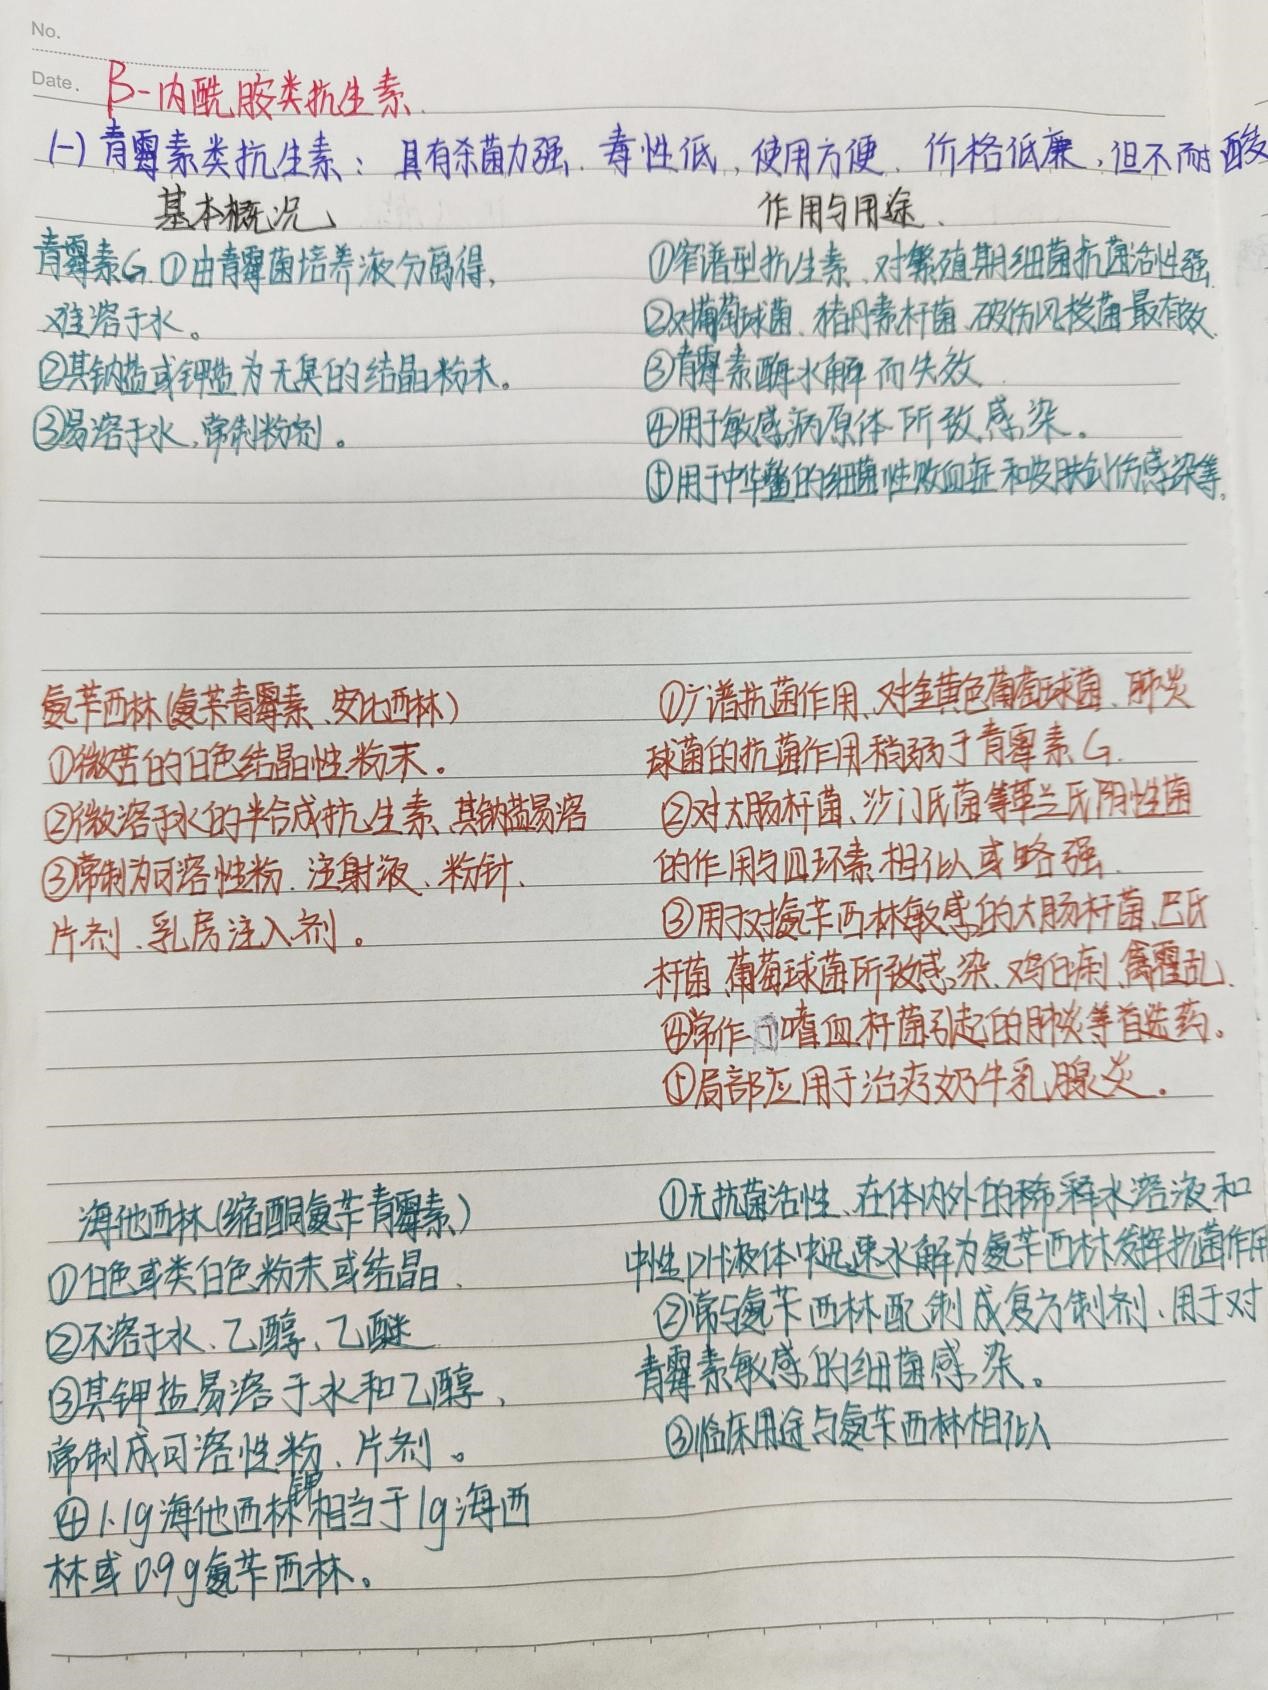 No.
Date.
β-内酰胺类抗生素
(一)青霉素类抗生素：具有杀菌力强、毒性低，使用方便、价格低廉，但不耐酸
基本概况
作用与用途
青霉素G ①由青霉菌培养液分离得，
难溶于水。
②其钠盐或钾盐为无臭的结晶粉末。
③易溶于水，常制粉剂。
①窄谱型抗生素、对繁殖期细菌抗菌活性强
②对葡萄球菌、猪丹素杆菌、破伤风梭菌最有效
③青霉素酶水解而失效
④用于敏感病原体所致感染。
⑤用于中华鳖的细菌性败血症和皮肤创伤感染等。
氨苄西林(氨苄青霉素、安比西林)
①微苦的白色结晶性粉末。
②微溶于水的半合成抗生素、其钠盐易溶
③常制为可溶性粉、注射液、粉针、
片剂、乳房注入剂。
①广谱抗菌作用、对金黄色葡萄球菌、肺炎
球菌的抗菌作用稍弱于青霉素G
②对大肠杆菌、沙门氏菌等革兰氏阴性菌
的作用与四环素相似或略强
③用于对氨苄西林敏感的大肠杆菌、巴氏
杆菌、葡萄球菌所致感染、鸡白痢、禽霍乱
④常作 嗜血杆菌引起的肺炎等首选药。
⑤局部应用于治疗奶牛乳腺炎。
海他西林(缩酮氨苄青霉素)
①白色或类白色粉末或结晶、
②不溶于水、乙醇、乙醚
③其钾盐易溶于水和乙醇，
常制成可溶性粉、片剂。
④1.1g海他西林钾相当于1g海西
林或0.9g氨苄西林。
①无抗菌活性、在体内外的稀释水溶液和
中性PH液体中迅速水解为氨苄西林发挥抗菌作用
②常与氨苄西林配制成复方制剂、用于对
青霉素敏感的细菌感染。
③临床用途与氨苄西林相似